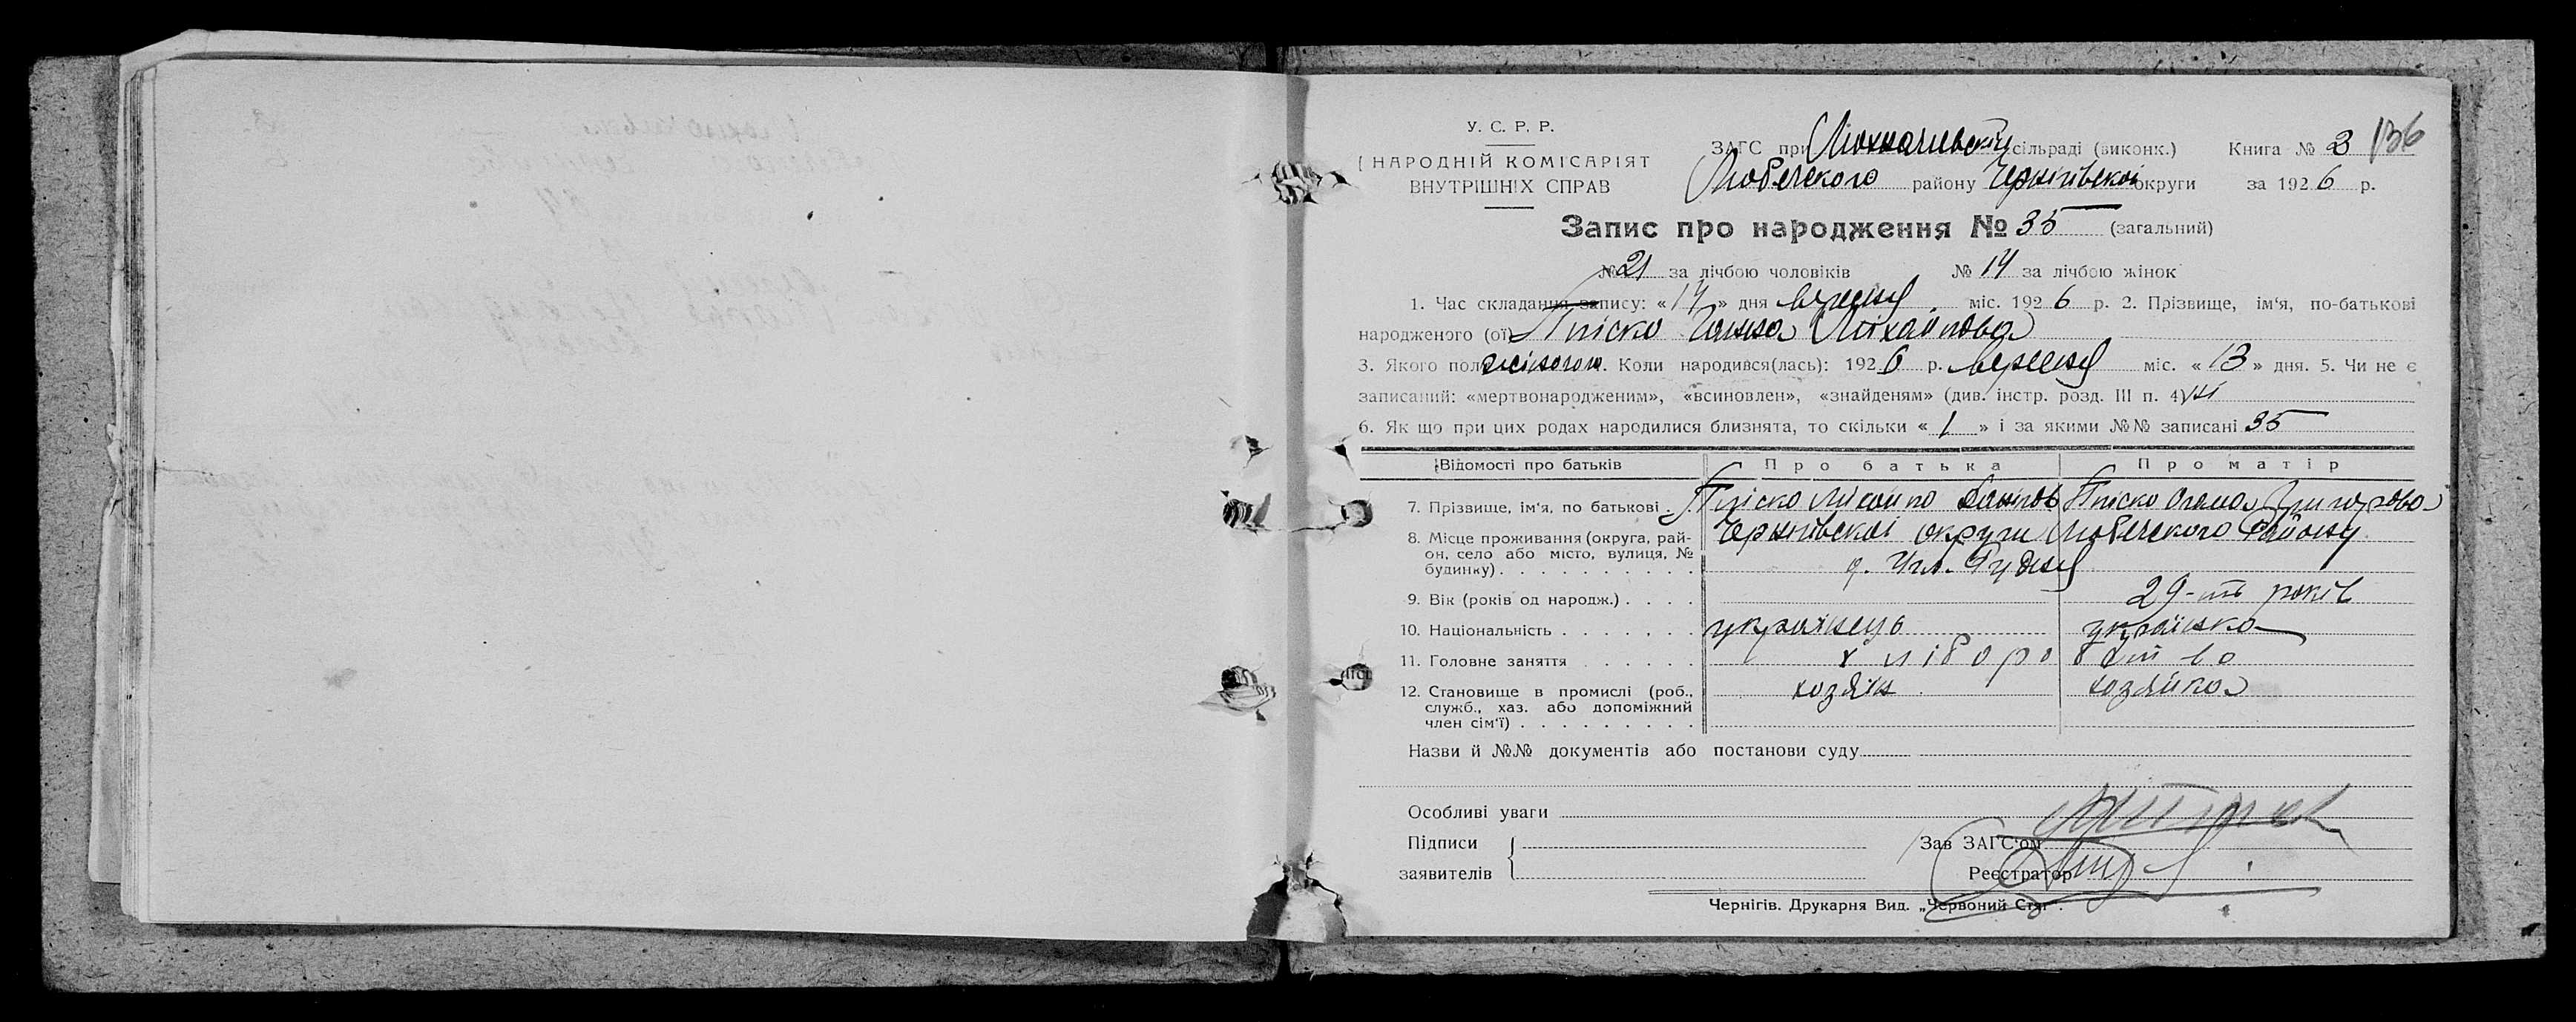 136
У. С. Р. Р.
НАРОДНІЙ КОМІСАРІЯТ
ВНУТРІШНІХ СПРАВ
ЗАГС при сільраді (виконк.) Книга № 3
Любечского району Чернігівскоі округи за 1926 р.
Запис про народження № 35 (загальний)
№ 21 за лічбою чоловіків № 14 за лічбою жінок
1. Час складання запису: «14» дня вересня міс. 1926 р. 2. Прізвище, ім'я, по-батькові
народженого (ої) Ганна Міхайлова
3. Якого полу жіночого. Коли народився(лась): 1926 р. вересня міс. «13» дня. 5. Чи не є
записаний: «мертвонародженим», «всиновлен», «знайденям» (див. інстр. розд. III п. 4) ні
6. Як що при цих родах народилися близнята, то скільки «1» і за якими №№ записані 35
Відомості про батьків Про батька Про матір
7. Прізвище, ім'я, по батькові . Міхайло Григорова
8. Місце проживання (округа, рай- Чернігівскоі округи Любечского Району
он, село або місто, вулиця, №
будинку) . . . . . . . . . Рудня
9. Вік (років од народж.) . . . . 29-ть років
10. Національність . . . . . . . українець українка
11. Головне заняття . . . . . . хліборобство
12. Становище в промислі (роб., хозяїн хозяйка
служб., хаз. або допоміжний
член сім'ї) . . . . . . . . .
Назви й №№ документів або постанови суду
Особливі уваги
Підписи
заявителів
Зав ЗАГС'ом
Реєстратор
Чернігів. Друкарня Вид. „Червоний Стяг".